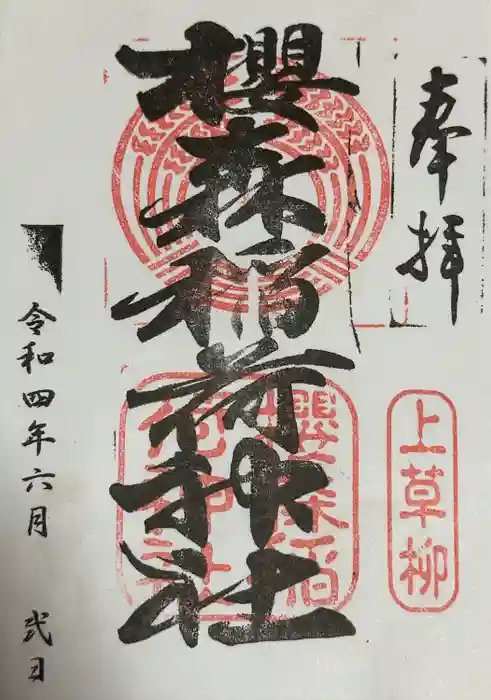 奉拝
上草柳
櫻森稲荷神社
櫻森稻荷神社
令和四年六月 弐日